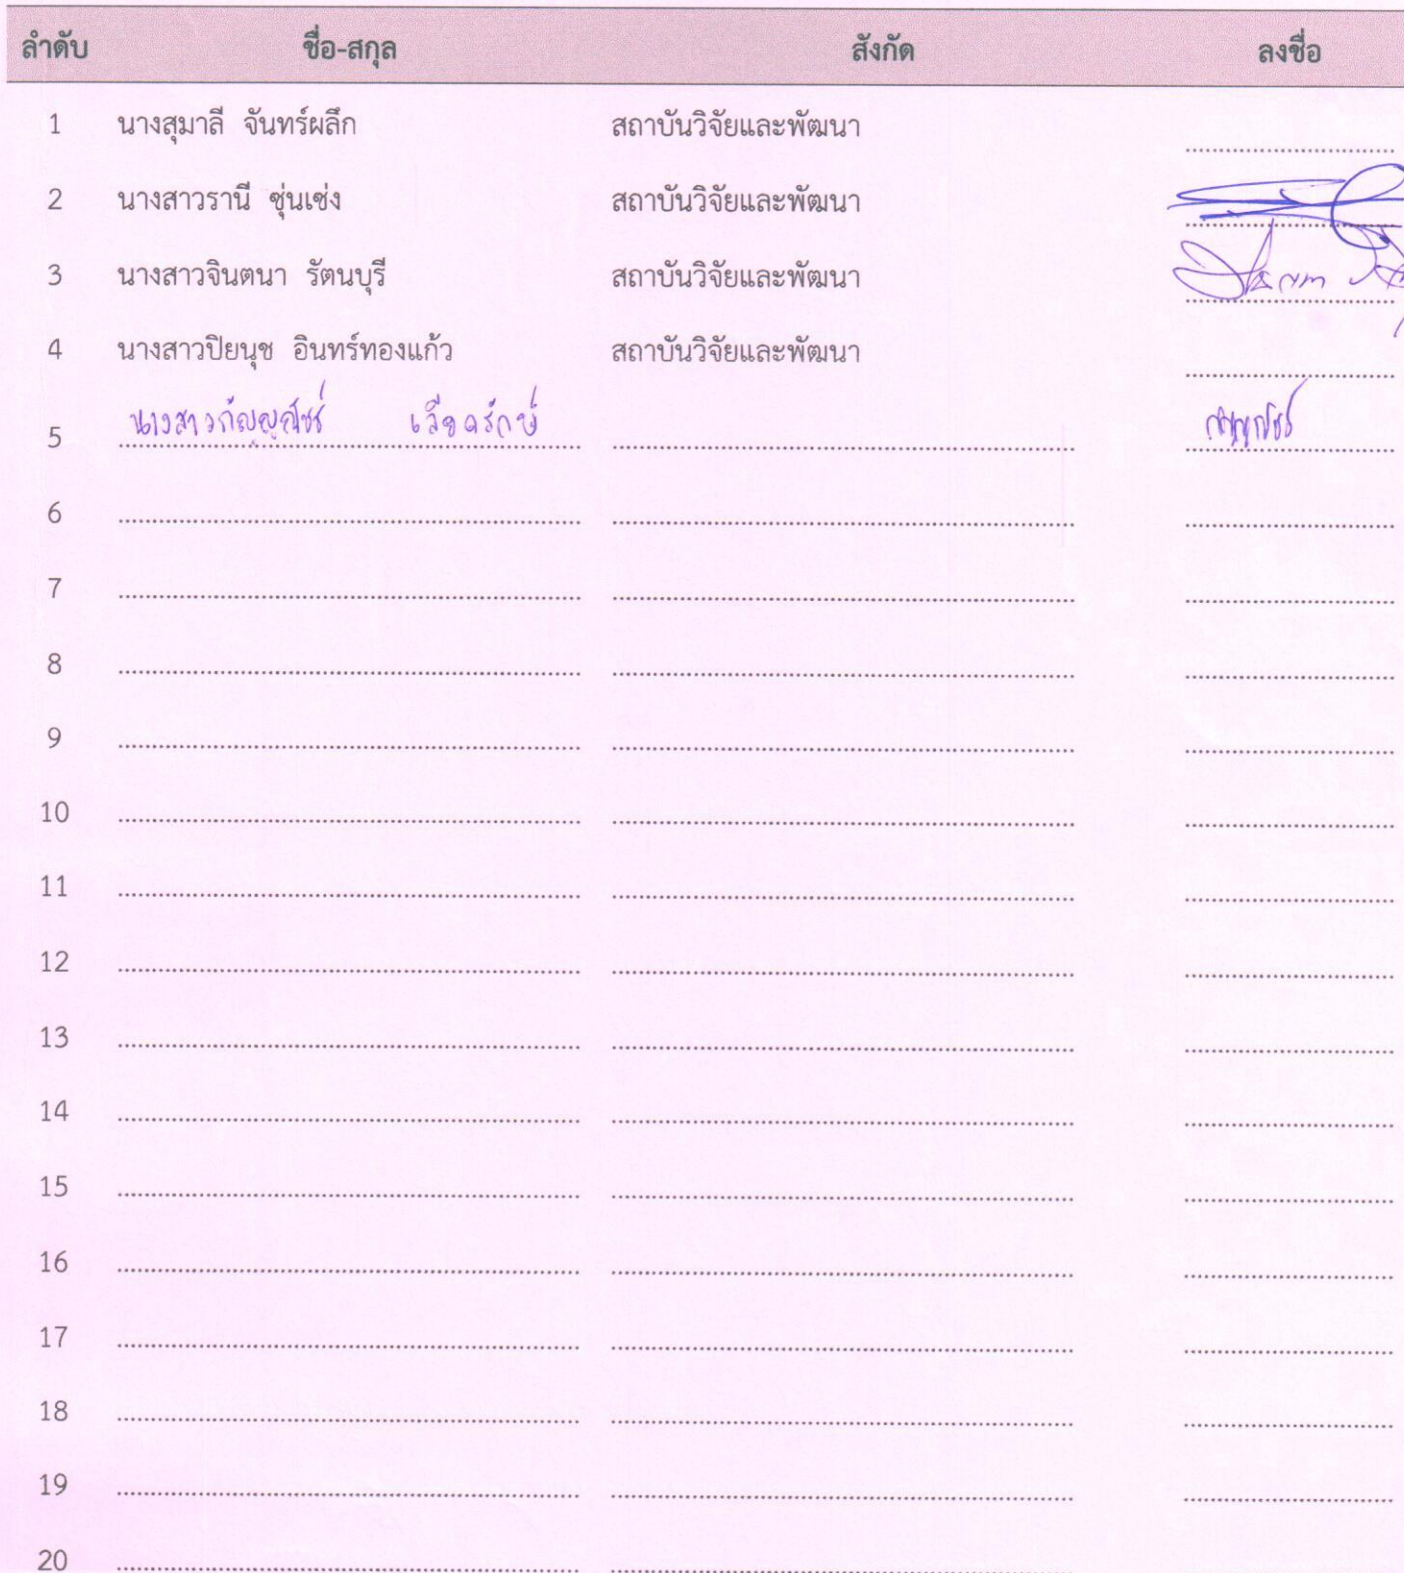 ลำดับ ชื่อ-สกุล สังกัด ลงชื่อ
1 นางสุมาลี จันทร์ผลึก สถาบันวิจัยและพัฒนา
2 นางสาวรานี ซุ่นเซ่ง สถาบันวิจัยและพัฒนา
3 นางสาวจินตนา รัตนบุรี สถาบันวิจัยและพัฒนา
4 นางสาวปิยนุช อินทร์ทองแก้ว สถาบันวิจัยและพัฒนา
5 นางสาวกัญญณัชร์
6
7
8
9
10
11
12
13
14
15
16
17
18
19
20